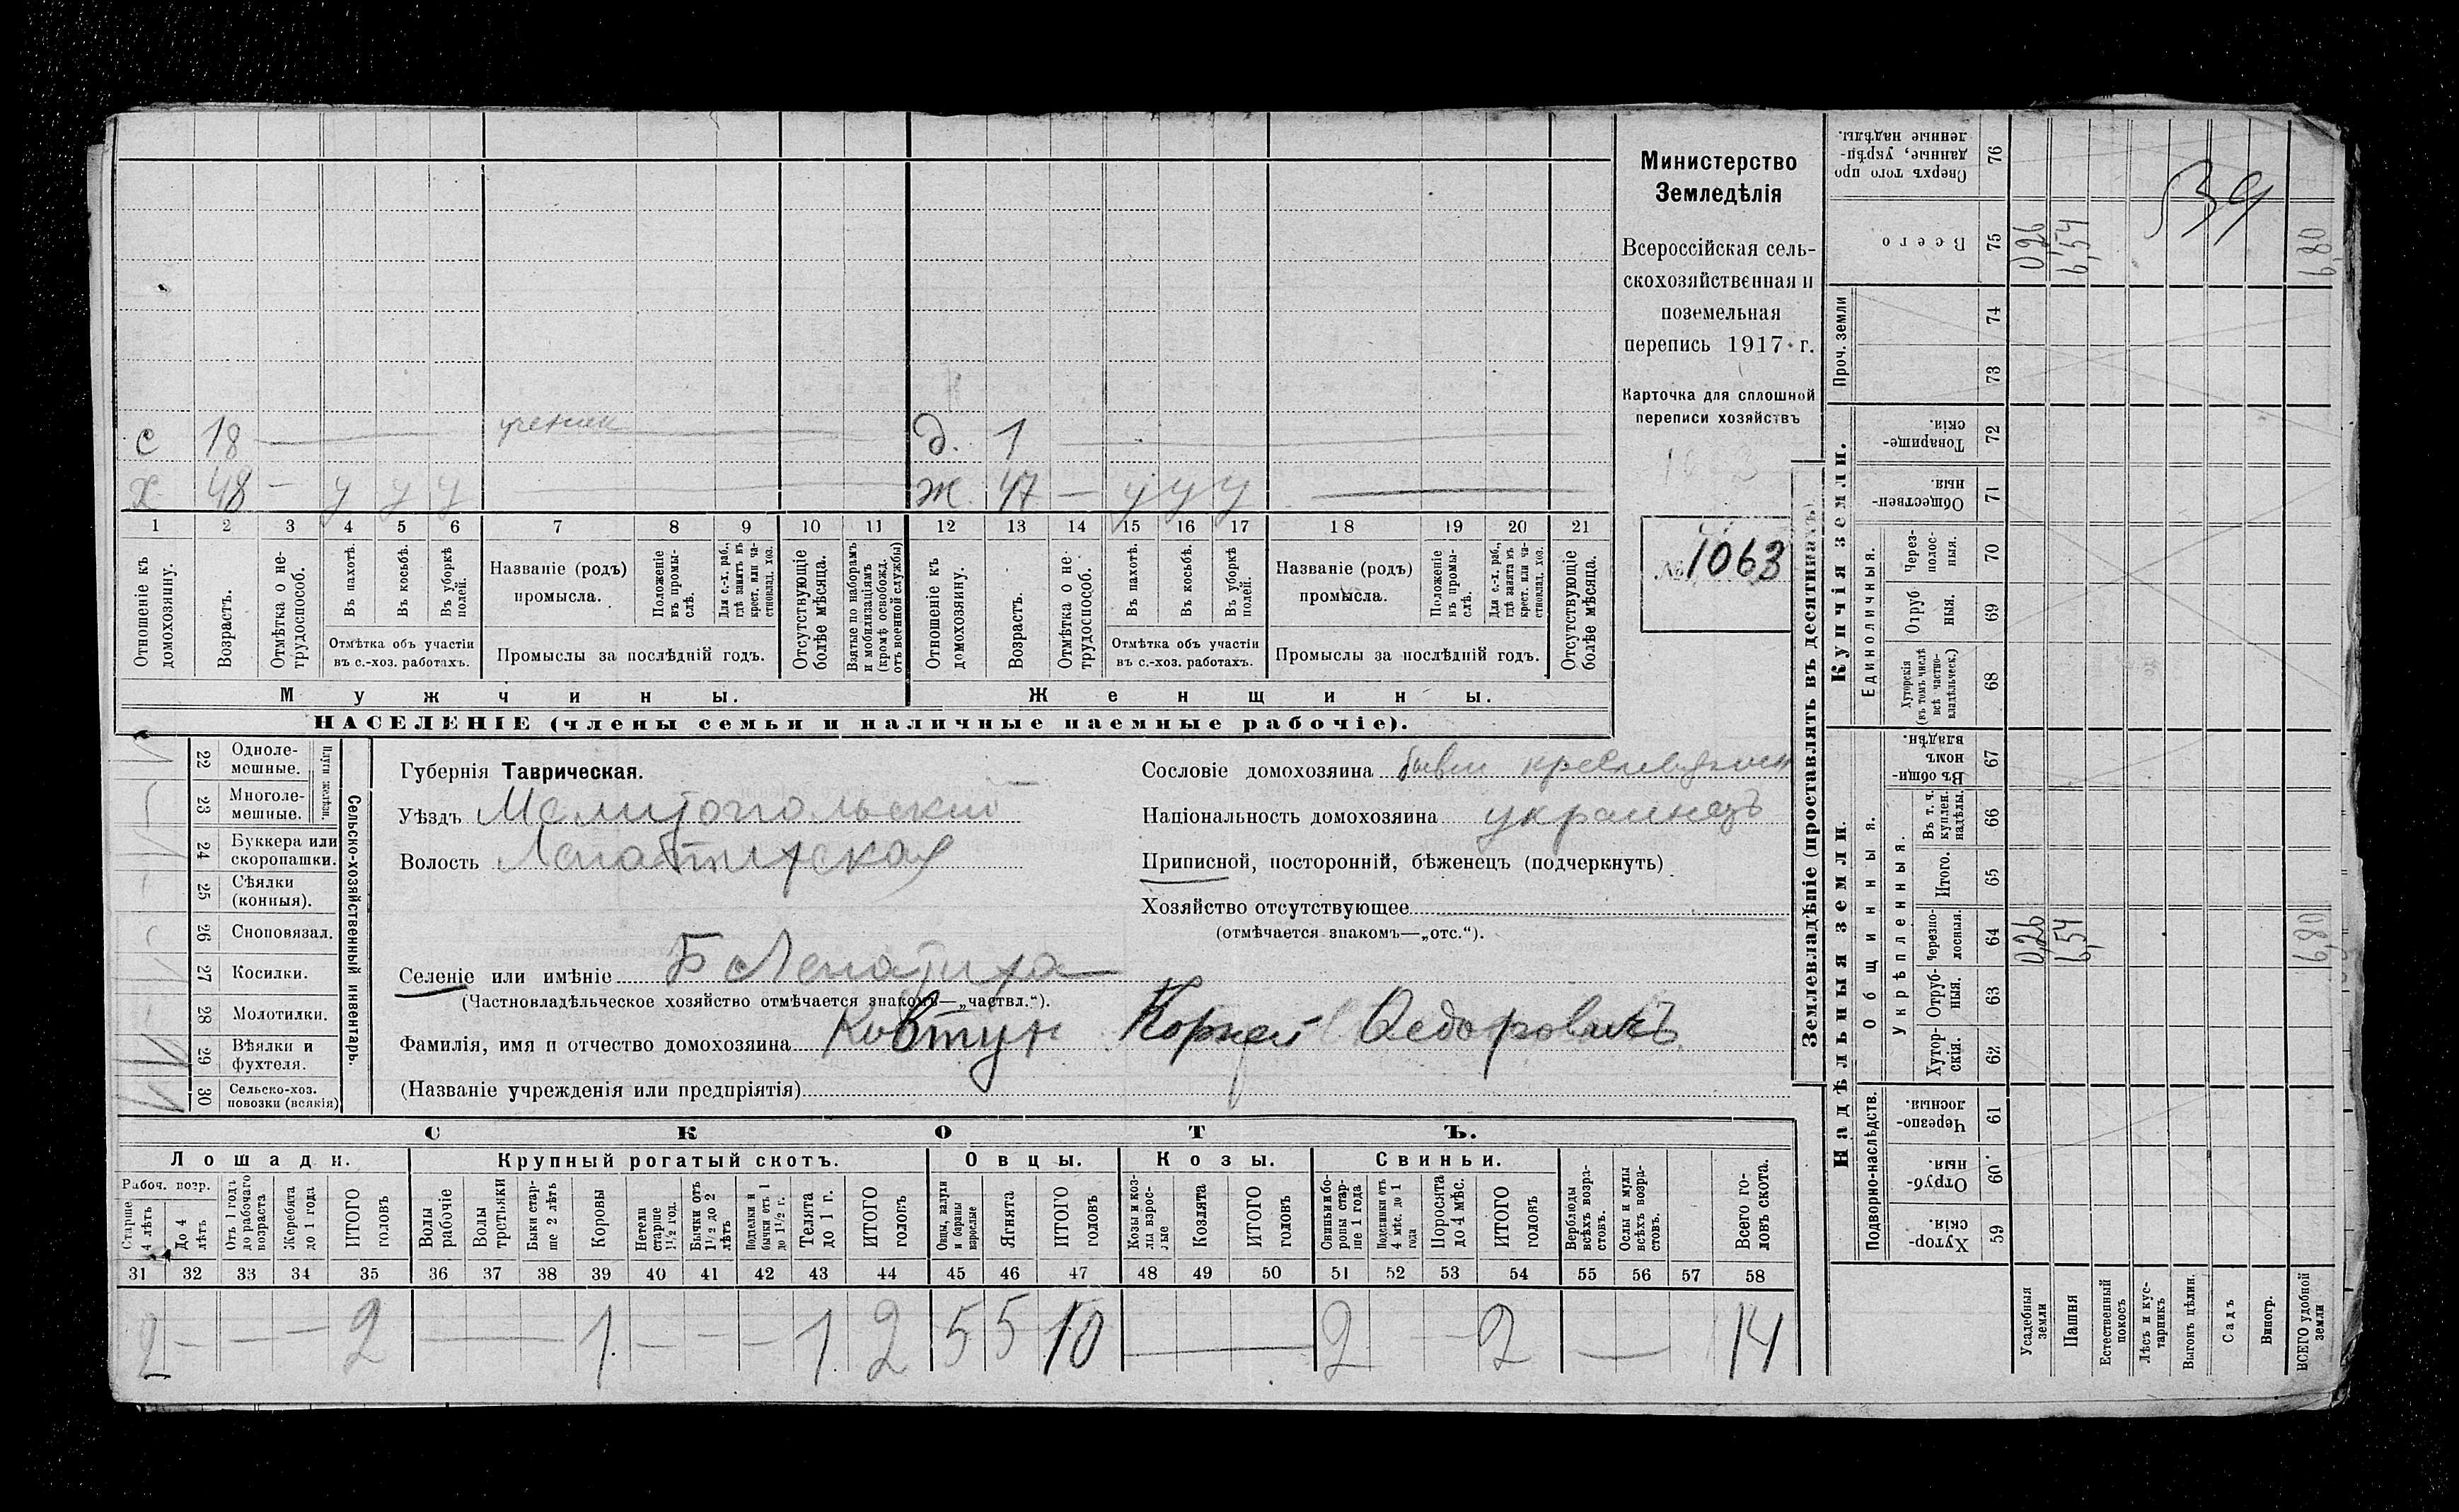 с 18 — ученик — д. 1 —
х 48 — у у у — ж. 47 — у у у —
1 2 3 4 5 6 7 8 9 10 11 12 13 14 15 16 17 18 19 20 21
Отношеніе къ домохозяину.
Возрастъ.
Отмѣтка о не-трудоспособ.
Въ пахотѣ.
Въ косьбѣ.
Въ уборкѣ полей.
Отмѣтка объ участіи въ с.-хоз. работахъ.
Названіе (родъ) промысла.
Положеніе въ промы-слѣ.
Для с.-х. раб., гдѣ занятъ въ крест. или ча-стновлад. хоз.
Промыслы за послѣдній годъ.
Отсутствующіе болѣе мѣсяца.
Взятые по наборамъ и мобилизаціямъ (кромѣ освобожд. отъ военной службы)
Отношеніе къ домохозяину.
Возрастъ.
Отмѣтка о не-трудоспособ.
Въ пахотѣ.
Въ косьбѣ.
Въ уборкѣ полей.
Отмѣтка объ участіи въ с.-хоз. работахъ.
Названіе (родъ) промысла.
Положеніе въ промы-слѣ.
Для с.-х. раб., гдѣ занята въ крест. или ча-стновлад. хоз.
Промыслы за послѣдній годъ.
Отсутствующіе болѣе мѣсяца.
Мужчины. Женщины.
НАСЕЛЕНІЕ (члены семьи и наличные наемные рабочіе).
Министерство
Земледѣлія
Всероссійская сель-
скохозяйственная и
поземельная
перепись 1917 г.
Карточка для сплошной
переписи хозяйствъ
№ 1063
22 Одноле-мешные.
23 Многоле-мешные.
Плуги желѣзн.
24 Буккера или скоропашки.
25 Сѣялки (конныя).
26 Сноповязал.
27 Косилки.
28 Молотилки.
29 Вѣялки и фухтеля.
30 Сельско-хоз. повозки (всякія)
Сельско-хозяйственный инвентарь.
Губернія Таврическая.
Уѣздъ Мелитопольский
Волость Лепатихская
Селеніе или имѣніе Б Лепатиха
(Частновладѣльческое хозяйство отмѣчается знакомъ—„частвл.“).
Фамилія, имя и отчество домохозяина Ковтун Корней Федоровичъ
(Названіе учрежденія или предпріятія)
Сословіе домохозяина бывш
Національность домохозяина украинецъ
Приписной, посторонній, бѣженецъ (подчеркнуть)
Хозяйство отсутствующее
(отмѣчается знакомъ—„отс.“).
СКОТЪ.
Лошади. Крупный рогатый скотъ. Овцы. Козы. Свиньи.
Рабоч. возр.
Старше 4 лѣтъ
До 4 лѣтъ
Отъ 1 года до рабочаго возраста
Жеребята до 1 года
ИТОГО головъ
Волы рабочіе
Волы третьяки
Быки стар-ше 2 лѣтъ
Коровы
Нетели старше 1½ год.
Бычки отъ 1½ до 2 лѣтъ
Подтелки и бычки отъ 1 до 1½ г.
Телята до 1 г.
ИТОГО головъ
Овцы, валухи и бараны взрослые
Ягнята
ИТОГО головъ
Козы и коз-лы взрос-лые
Козлята
ИТОГО головъ
Свиньи и бо-ровы стар-ше 1 года
Подсвинки отъ 4 мѣс. до 1 года
Поросята до 4 мѣс.
ИТОГО головъ
Верблюды всѣхъ возра-стовъ.
Ослы и мулы всѣхъ возра-стовъ.
Всего го-ловъ скота.
31 32 33 34 35 36 37 38 39 40 41 42 43 44 45 46 47 48 49 50 51 52 53 54 55 56 57 58
2 — — — 2 — 1 — — — 1 2 5 5 10 — 2 — — 2 — 14
Землевладѣніе (проставлять въ десятинахъ)
Купчія земли.
Надѣльныя земли.
Проч. земли
Сверхъ того про-данные, укрѣп-ленные надѣлы. 76
Всего 75 0,26 6,54 6,80
74
73
Товарище-скія. 72
Обществен-ныя. 71
Единоличныя.
Через-полос-ныя. 70
Отруб-ныя. 69
Хуторскія (въ томъ числѣ всѣ частно-владѣльческ.) 68
Въ общин-номъ владѣн. 67
Общинныя.
Укрѣпленныя.
Въ т. ч. куплен. надѣлы. 66
Итого. 65
Черезпо-лосныя. 64 0,26 6,54 6,80
Отруб-ныя. 63
Хутор-скія. 62
Подворно-наслѣдств.
Черезпо-лосныя. 61
Отруб-ныя. 60
Хутор-скія. 59
Усадебныя земли
Пашня
Естественный покосъ
Лѣсъ и кус-тарникъ
Выгонъ цѣлин.
Садъ
Виногр.
ВСЕГО удобной земли
539